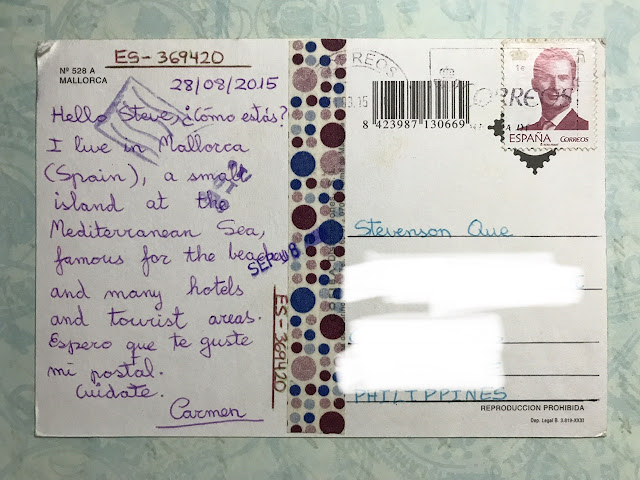 ES-369420
Nº 528 A
MALLORCA
28/08/2015
Hello Steve, ¿Cómo estás?
I live in Mallorca
(Spain), a small
island at the
Mediterranean Sea,
famous for the beaches
and many hotels
and tourist areas.
Espero que te guste
mi postal.
Cuídate.
Carmen
SEP 18
ES-369420
CORREOS
8 423987 130669
CORREOS
ESPAÑA
CORREOS
Stevenson Que
PHILIPPINES
REPRODUCCION PROHIBIDA
Dep. Legal B 3.818-XXXI